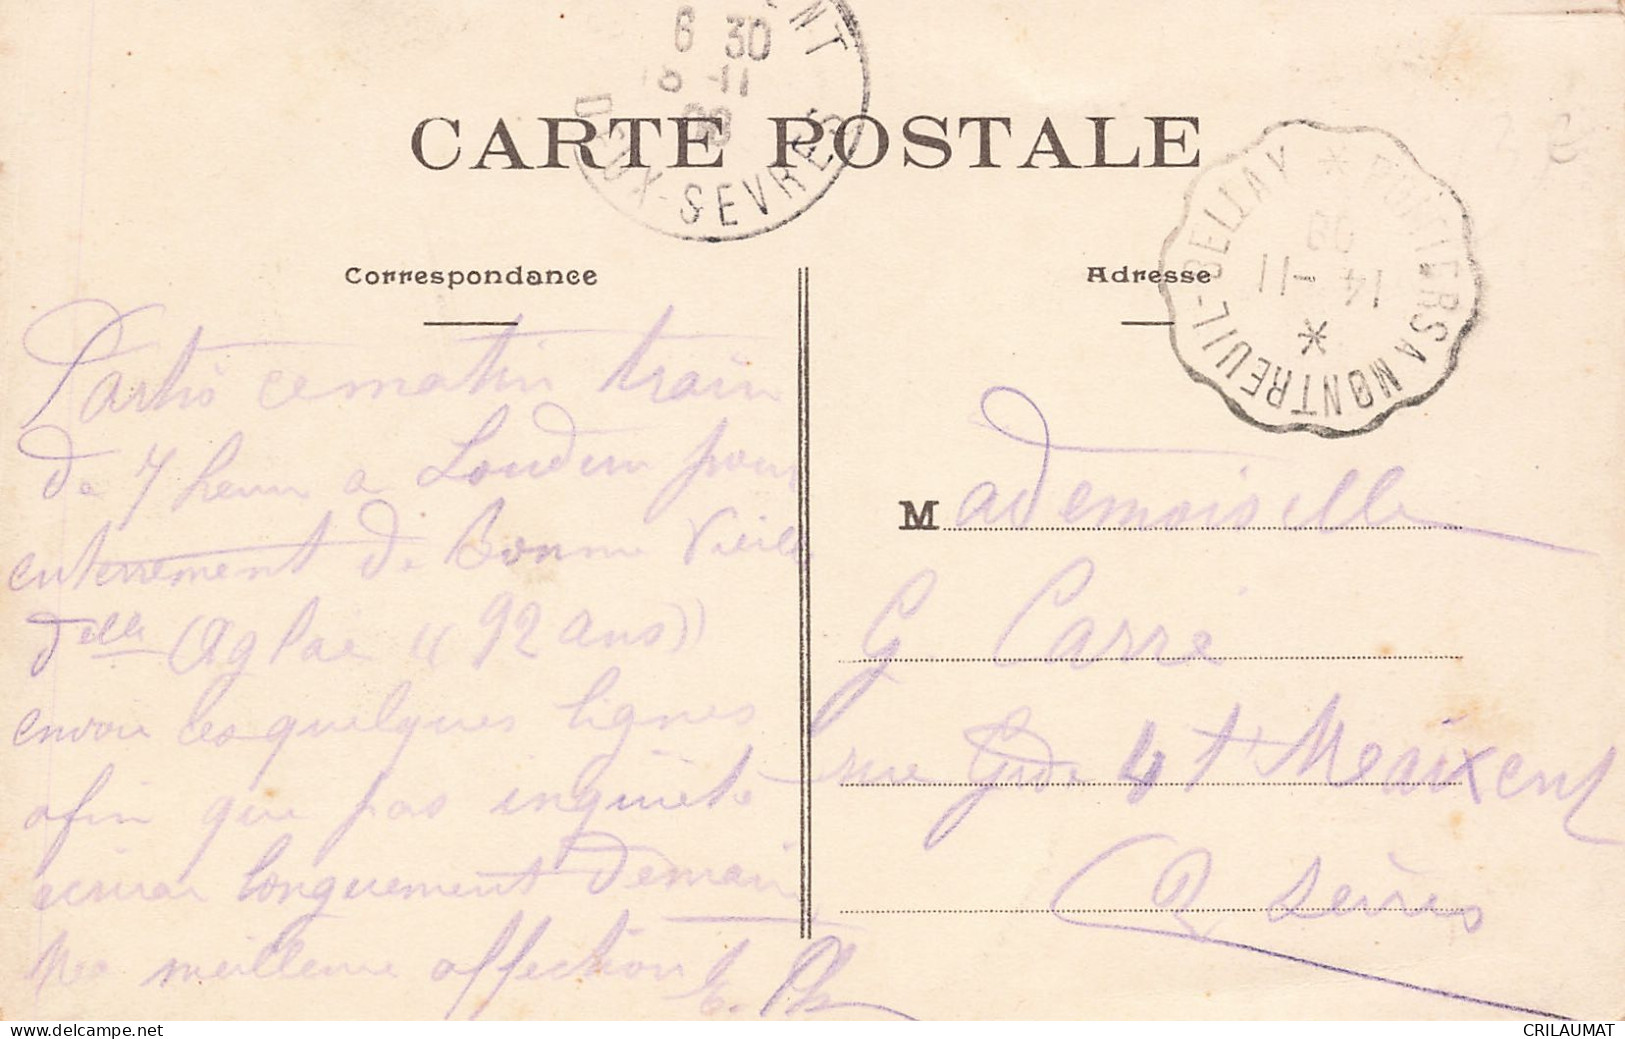 6 30
18 -11
09
DEUX-SEVRES
CARTE POSTALE
POITIERS A MONTREUIL-BELLAY
14 -11
09
Correspondance
Adresse
Partis ce matin train
de 7 heures a Loudun pour
enterrement de Bonne Vieille
delle (Aglaé "92 ans))
envoie ces quelques lignes
afin que pas inquiète
écrirai longuement demain
Mes meilleure affection
Mademoiselle
G. Carré
rue Gde 4 St Maixent
2 Sèvres
www.delcampe.net
CRILAUMAT